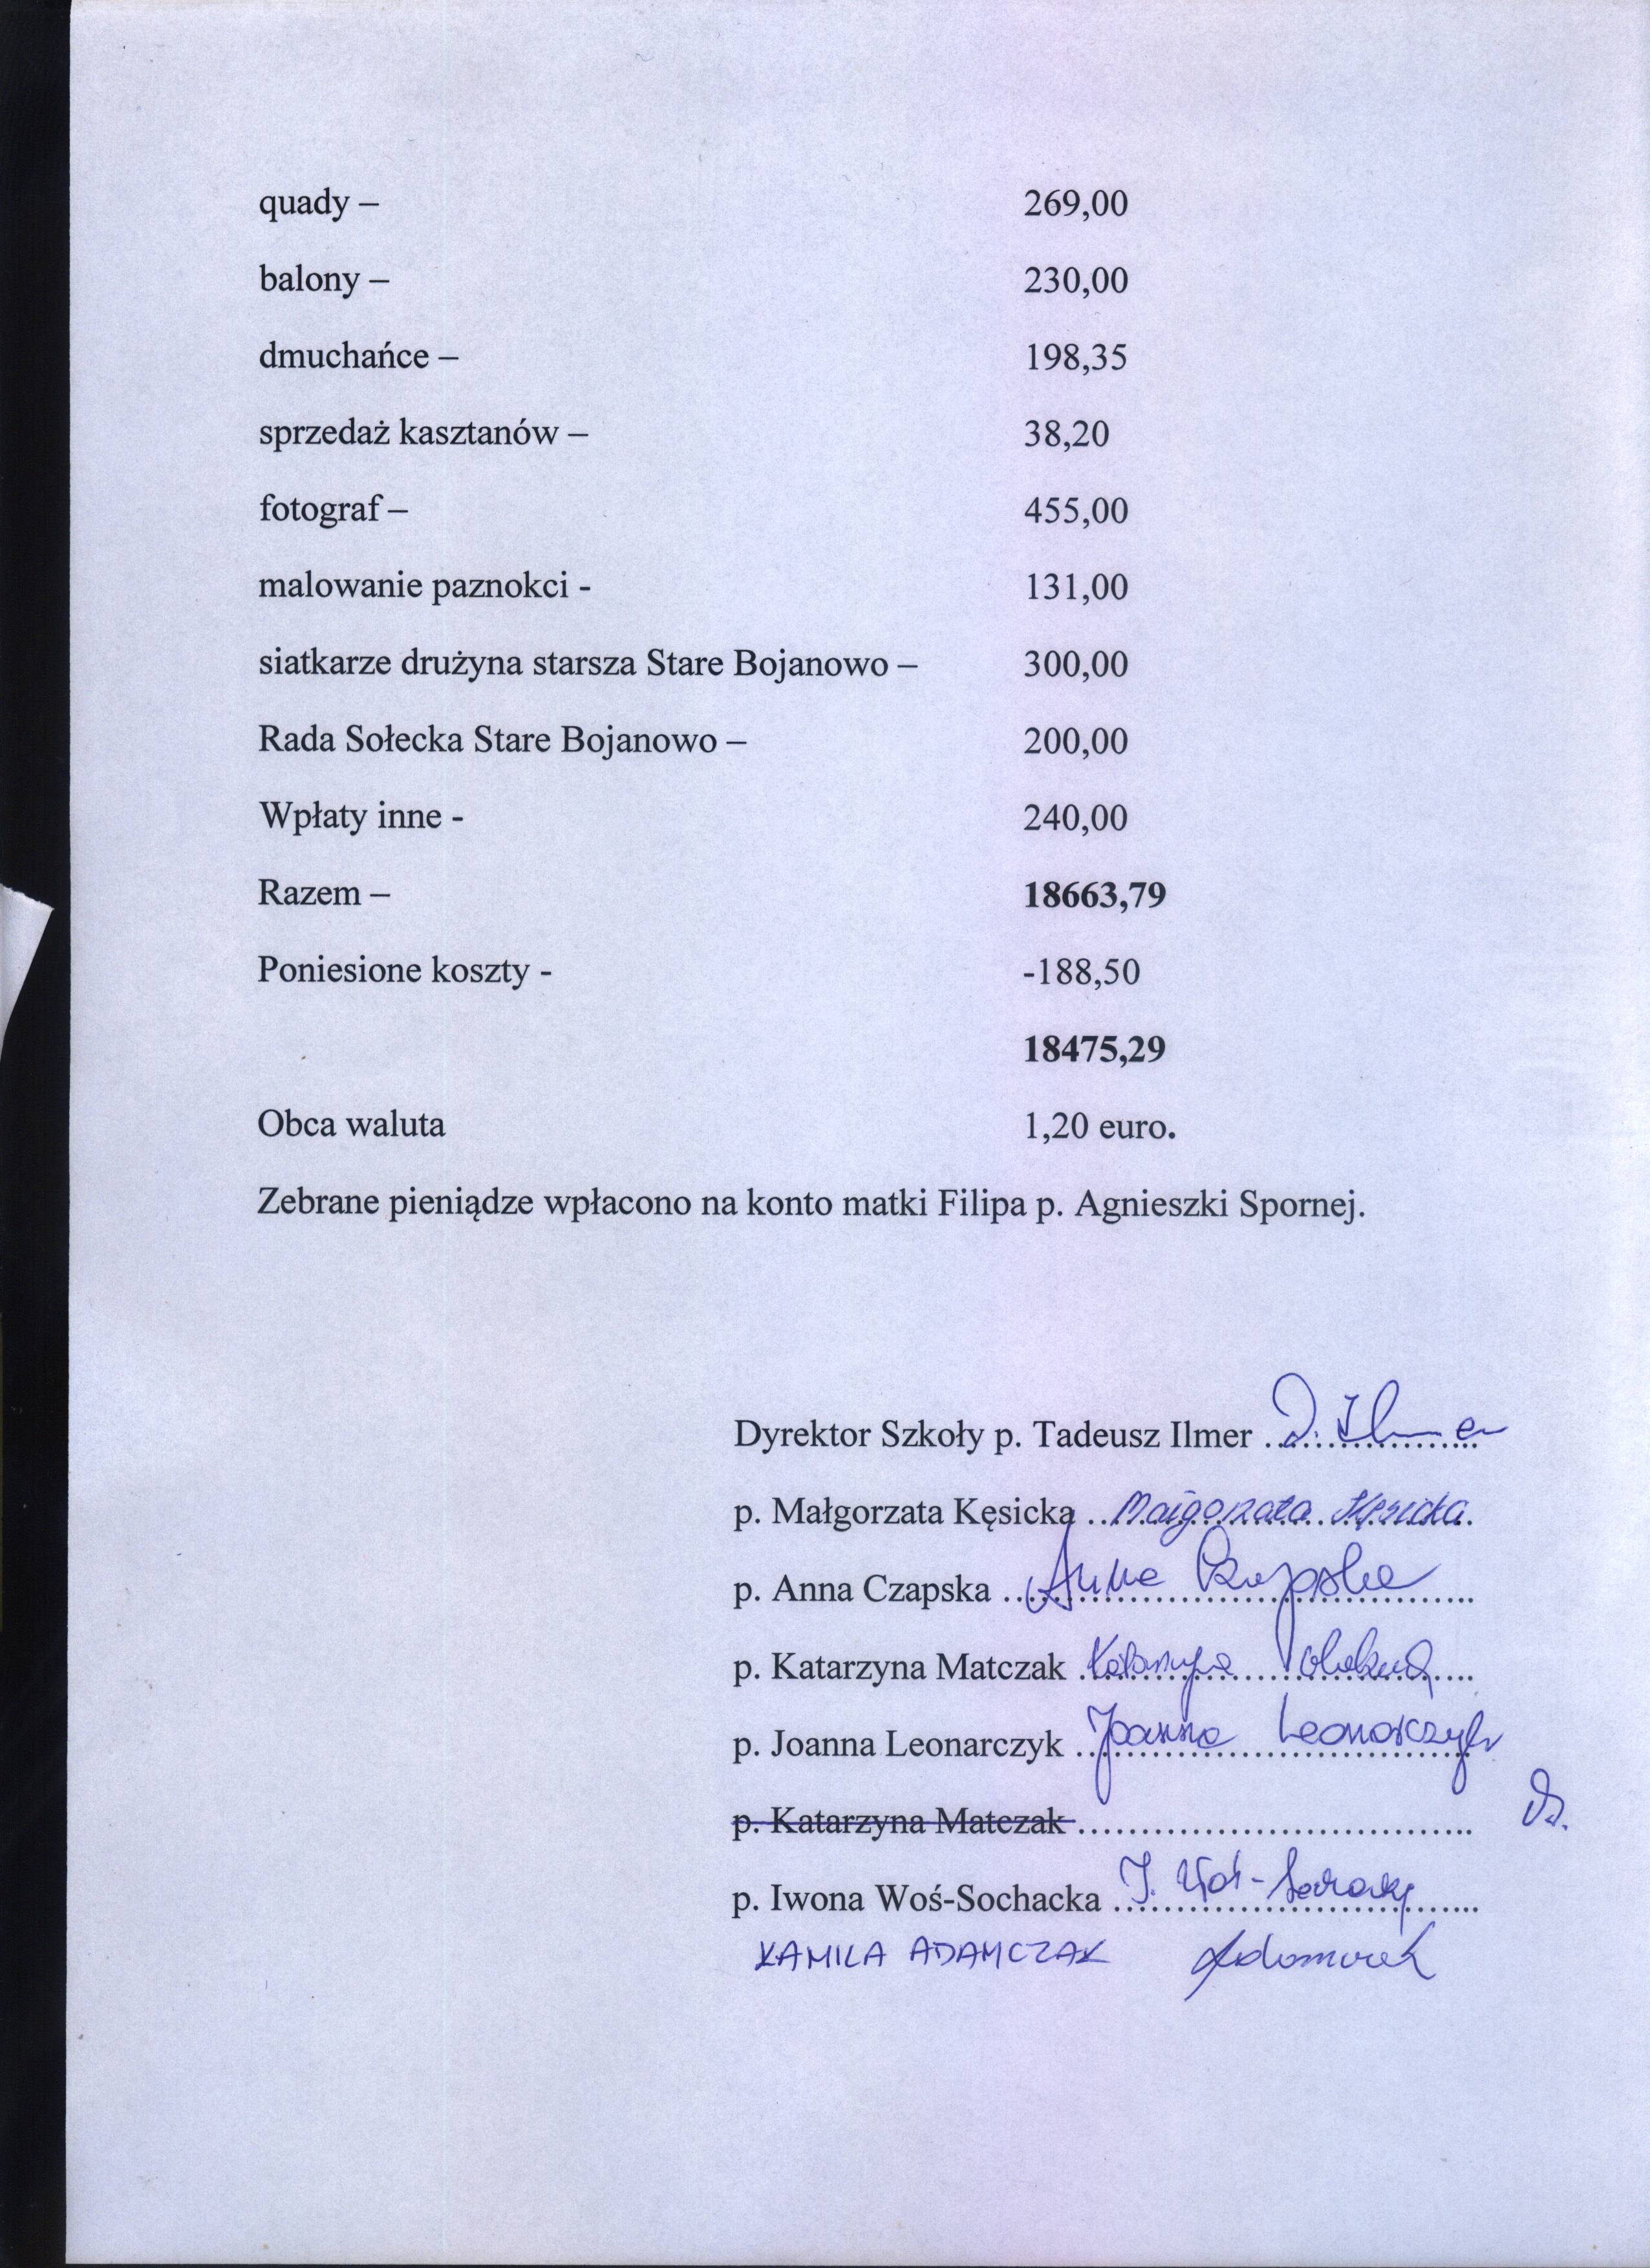 quady – 269,00
balony – 230,00
dmuchańce – 198,35
sprzedaż kasztanów – 38,20
fotograf – 455,00
malowanie paznokci - 131,00
siatkarze drużyna starsza Stare Bojanowo – 300,00
Rada Sołecka Stare Bojanowo – 200,00
Wpłaty inne - 240,00
Razem – 18663,79
Poniesione koszty - -188,50
18475,29
Obca waluta 1,20 euro.
Zebrane pieniądze wpłacono na konto matki Filipa p. Agnieszki Spornej.
Dyrektor Szkoły p. Tadeusz Ilmer ........ Ilmer
p. Małgorzata Kęsicka ........ Małgorzata Kęsicka
p. Anna Czapska ........ Anna Czapska
p. Katarzyna Matczak ........ Katarzyna
p. Joanna Leonarczyk ........ Joanna Leonarczyk
p. Katarzyna Matczak ........
p. Iwona Woś-Sochacka ........ I. Woś-Sochacka
KAMILA ADAMCZAK